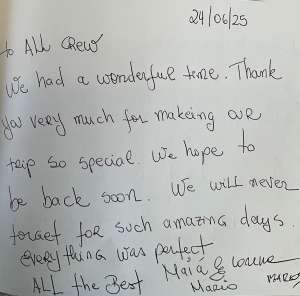 24/06/25
to ALL CREW
We had a wonderful time. Thank
you very much for makeing our
trip so special. We hope to
be back soon. We will never
forget for such amazing days.
everything was perfect
ALL the Best Maiá &
Mario MARIO